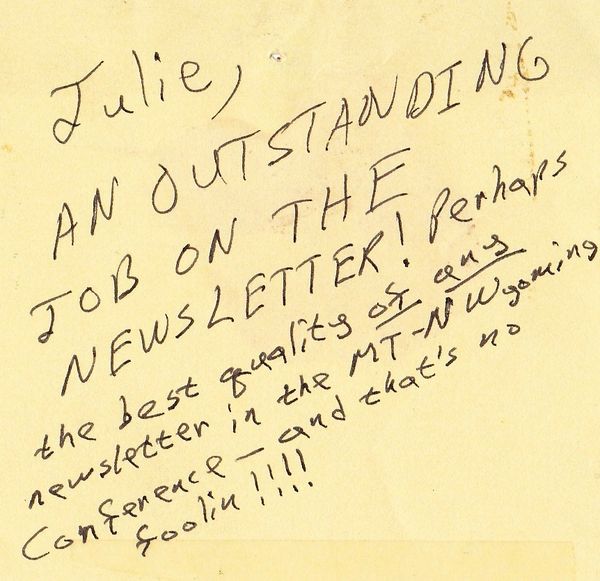 Julie,
AN OUTSTANDING
JOB ON THE
NEWSLETTER! Perhaps
the best quality of any
newsletter in the MT-N Wyoming
Conference - and that's no
foolin!!!!